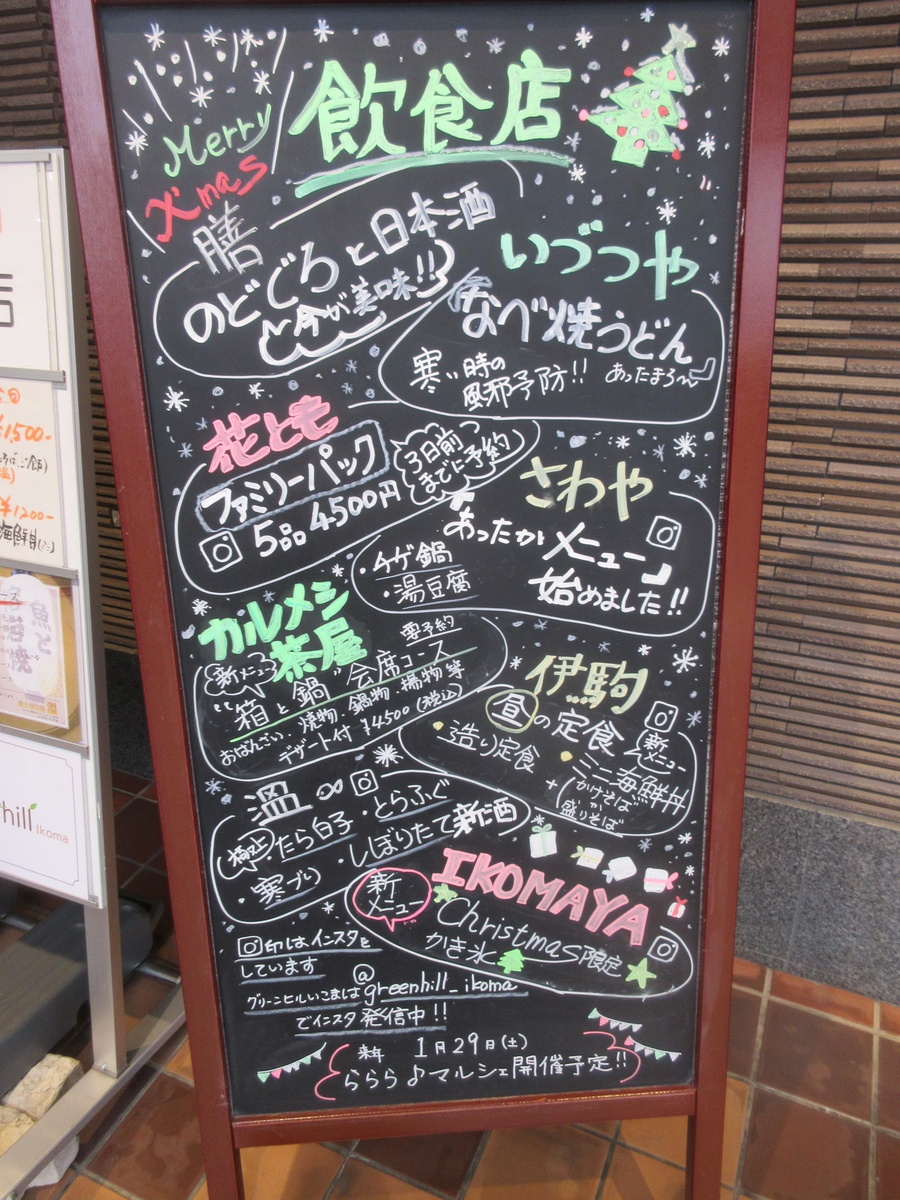 Merry
X'mas
飲食店
膳
のどぐろと日本酒
と今が美味!!
いづつや
なべ焼うどん
寒い時の
風邪予防!!
あったまろ〜
花とも
ファミリーパック
5品 4500円
3日前
までに予約
さわや
あったか
メニュー
始めました!!
・チゲ鍋
・湯豆腐
カルメシ
茶屋
要予約
新メニュー
"箱と鍋"会席コース
おばんざい、焼物、鍋物、揚物等
デザート付 ¥4500(税込)
伊駒
昼の定食
新
メニュー
・造り定食
・ミニ海鮮丼
+(かけそば
か
盛りそば)
温
極上
・たら白子
・とらふぐ
・寒ブリ
・しぼりたて新酒
IKOMAYA
新
メニュー
Christmas限定
かき氷
印はインスタを
しています
グリーンヒルいこまは@greenhill_ikoma
でインスタ発信中!!
来年 1月29日(土)
ららら♪マルシェ開催予定!!
¥1500-
¥1200-
海鮮丼
hill Ikoma